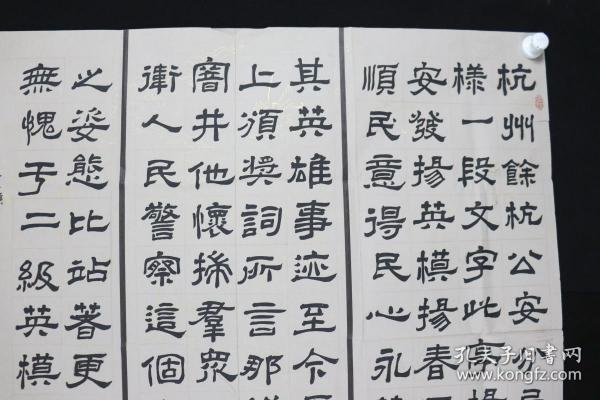 杭州餘杭公安分
樣一段文字此
安發揚英模揚春
順民意得民心永
其英雄事迹至今
上頒奬詞所言那
窨井他懷揣羣眾
衛人民警察這個
之姿態比站著更
無愧于二級英模
孔夫子旧书网
www.kongfz.com